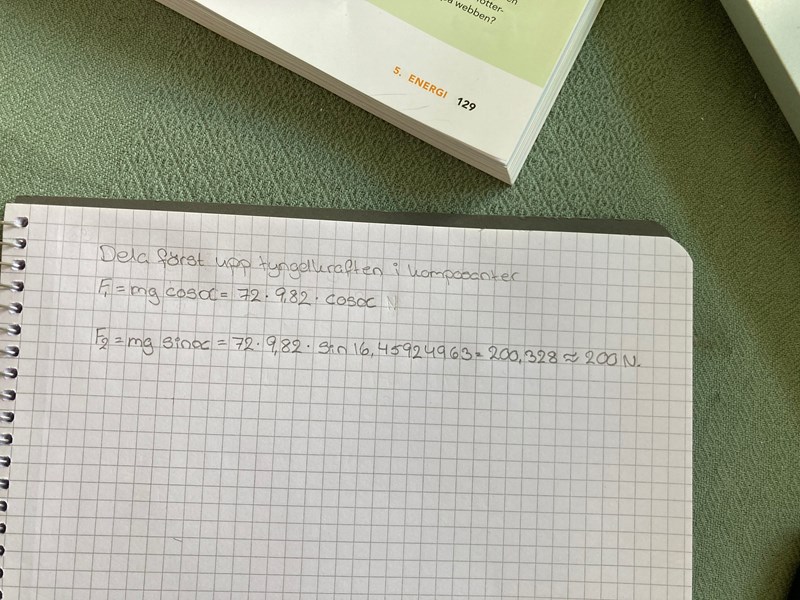 webben?
5. ENERGI 129
Dela först upp tyngdkraften i komposanter
F₁ = mg cosα = 72 · 9,82 · cosα N
F₂ = mg sinα = 72 · 9,82 · sin 16,45924963 = 200,328 ≈ 200 N.